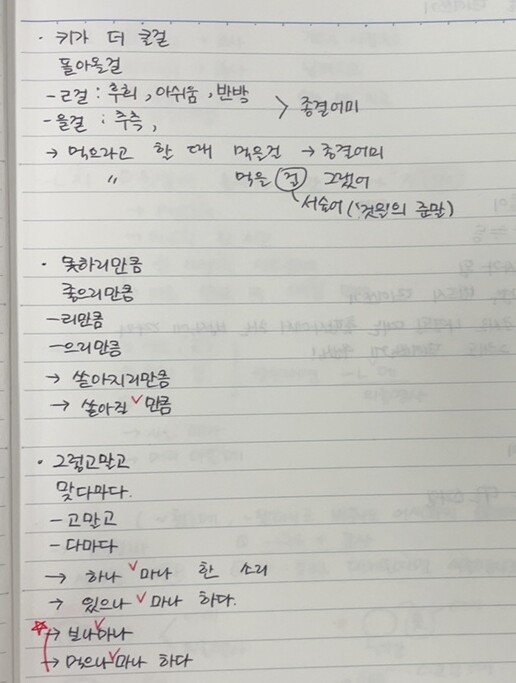 · 키가 더 클걸
돌아올걸
-ㄹ걸 : 후회, 아쉬움, 반박 > 종결어미
-을걸 : 추측,
→ 먹으라고 할 때 먹을걸 → 종결어미
〃 먹을 걸 그랬어
서술어('것을'의 준말)
· 못하리만큼
좋으리만큼
-리만큼
-으리만큼
→ 쏟아지리만큼
→ 쏟아질∨만큼
· 그렇고말고
맞다마다.
-고말고
-다마다
→ 하나∨마나 한 소리
→ 있으나∨마나 하다.
☆→ 보나∨마나
→ 먹으나∨마나 하다